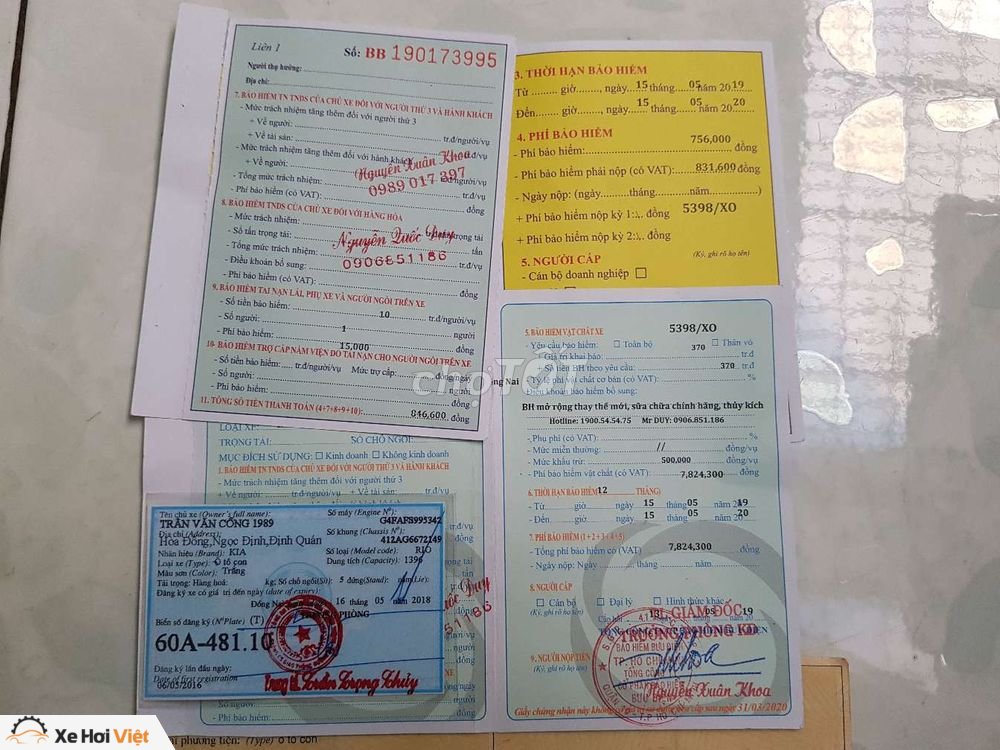 Liên 1 Số: BB 190173995
Người thụ hưởng:
Địa chỉ:
7. BẢO HIỂM TN TNDS CỦA CHỦ XE ĐỐI VỚI NGƯỜI THỨ 3 VÀ HÀNH KHÁCH
- Mức trách nhiệm tăng thêm đối với người thứ 3
+ Về người: tr.đ/người/vụ
+ Về tài sản: tr.đ/vụ
- Mức trách nhiệm tăng thêm đối với hành khách
+ Về người: tr.đ/người/vụ
- Tổng mức trách nhiệm: tr.đ/vụ
- Phí bảo hiểm (có VAT): đồng
Nguyễn Xuân Khoa
0989 017 397
8. BẢO HIỂM TNDS CỦA CHỦ XE ĐỐI VỚI HÀNG HÓA
- Mức trách nhiệm:
- Số tấn trọng tải: tấn
- Tổng mức trách nhiệm: tr.đ/vụ
- Điều khoản bổ sung:
- Phí bảo hiểm (có VAT): đồng
Nguyễn Quốc Duy
0906851186
9. BẢO HIỂM TAI NẠN LÁI, PHỤ XE VÀ NGƯỜI NGỒI TRÊN XE
- Số tiền bảo hiểm: 10 tr.đ/người/vụ
- Số người: 1 người
- Phí bảo hiểm: 15,000 đồng
10- BẢO HIỂM TRỢ CẤP NẰM VIỆN DO TAI NẠN CHO NGƯỜI NGỒI TRÊN XE
- Số tiền bảo hiểm: tr.đ/người/vụ Mức trợ cấp: đồng/ngày
- Số người: người
- Phí bảo hiểm: đồng
11. TỔNG SỐ TIỀN THANH TOÁN (4+7+8+9+10): 846,600 đồng
3. THỜI HẠN BẢO HIỂM
Từ giờ, ngày 15 tháng 05 năm 2019
Đến giờ, ngày 15 tháng 05 năm 2020
4. PHÍ BẢO HIỂM
- Phí bảo hiểm: 756,000 đồng
- Phí bảo hiểm phải nộp (có VAT): 831,600 đồng
- Ngày nộp: (ngày tháng năm )
+ Phí bảo hiểm nộp kỳ 1: đồng 5398/XO
+ Phí bảo hiểm nộp kỳ 2: đồng
5. NGƯỜI CẤP (Ký, ghi rõ họ tên)
- Cán bộ doanh nghiệp
5. BẢO HIỂM VẬT CHẤT XE 5398/XO
- Yêu cầu bảo hiểm: Toàn bộ Thân vỏ
- Giá trị khai báo: 370 tr.đ
- Số tiền BH theo yêu cầu: 370 tr.đ
- Tỷ lệ phí vật chất cơ bản (có VAT): %
- Điều khoản bảo hiểm bổ sung:
BH mở rộng thay thế mới, sửa chữa chính hãng, thủy kích
Hotline: 1900.54.54.75 Mr DUY: 0906.851.186
- Phụ phí (có VAT): %
- Mức miễn thường: // đồng/vụ
- Mức khấu trừ: 500,000 đồng/vụ
- Phí bảo hiểm vật chất (có VAT): 7,824,300 đồng
6. THỜI HẠN BẢO HIỂM 12 THÁNG)
- Từ giờ, ngày 15 tháng 05 năm 2019
- Đến giờ, ngày 15 tháng 05 năm 2020
7. PHÍ BẢO HIỂM (1+2+3+4+5)
- Tổng phí bảo hiểm (có VAT): 7,824,300 đồng
- Ngày nộp: Ngày tháng năm
8. NGƯỜI CẤP
Cán bộ Đại lý Hình thức khác
(Ký, ghi rõ họ tên)
TL. GIÁM ĐỐC
TRƯỞNG PHÒNG KD
BẢO HIỂM BƯU ĐIỆN
TP. HỒ CHÍ MINH
TỔNG CÔNG TY
CỔ PHẦN BẢO HIỂM
BƯU ĐIỆN
9. NGƯỜI NỘP TIỀN
(Ký, ghi rõ họ tên)
Nguyễn Xuân Khoa
Giấy chứng nhận này không có giá trị sử dụng nếu cấp sau ngày 31/03/2020
LOẠI XE:
TRỌNG TẢI: SỐ CHỖ NGỒI:
MỤC ĐÍCH SỬ DỤNG: Kinh doanh Không kinh doanh
1. BẢO HIỂM TN TNDS CỦA CHỦ XE ĐỐI VỚI NGƯỜI THỨ 3 VÀ HÀNH KHÁCH
- Mức trách nhiệm tăng thêm đối với người thứ 3
+ Về người: tr.đ/người/vụ + Về tài sản: tr.đ/vụ
Tên chủ xe (Owner's full name): Số máy (Engine Nº):
TRẦN VĂN CÔNG 1989 G4FAFS995342
Địa chỉ (Address): Số khung (Chassis Nº):
Hòa Đồng,Ngọc Định,Định Quán 412AG6672149
Nhãn hiệu (Brand): KIA Số loại (Model code): RIO
Loại xe (Type): Ô tô con Dung tích (Capacity): 1396
Màu sơn (Color): Trắng
Tải trọng: Hàng hoá: kg; Số chỗ ngồi(Sit): 5 đứng(Stand): nằm(Lie):
Đăng ký xe có giá trị đến ngày (date of expiry):
Đồng Nai 16 tháng 05 năm 2018
Biển số đăng ký (Nº Plate) (T)
60A-481.10
Đăng ký lần đầu ngày:
Date of first registration
06/05/2016
Trung tá Trần Trọng Thủy
phương tiện: (Type) ô tô con
chợTỐT
Xe Hơi Việt